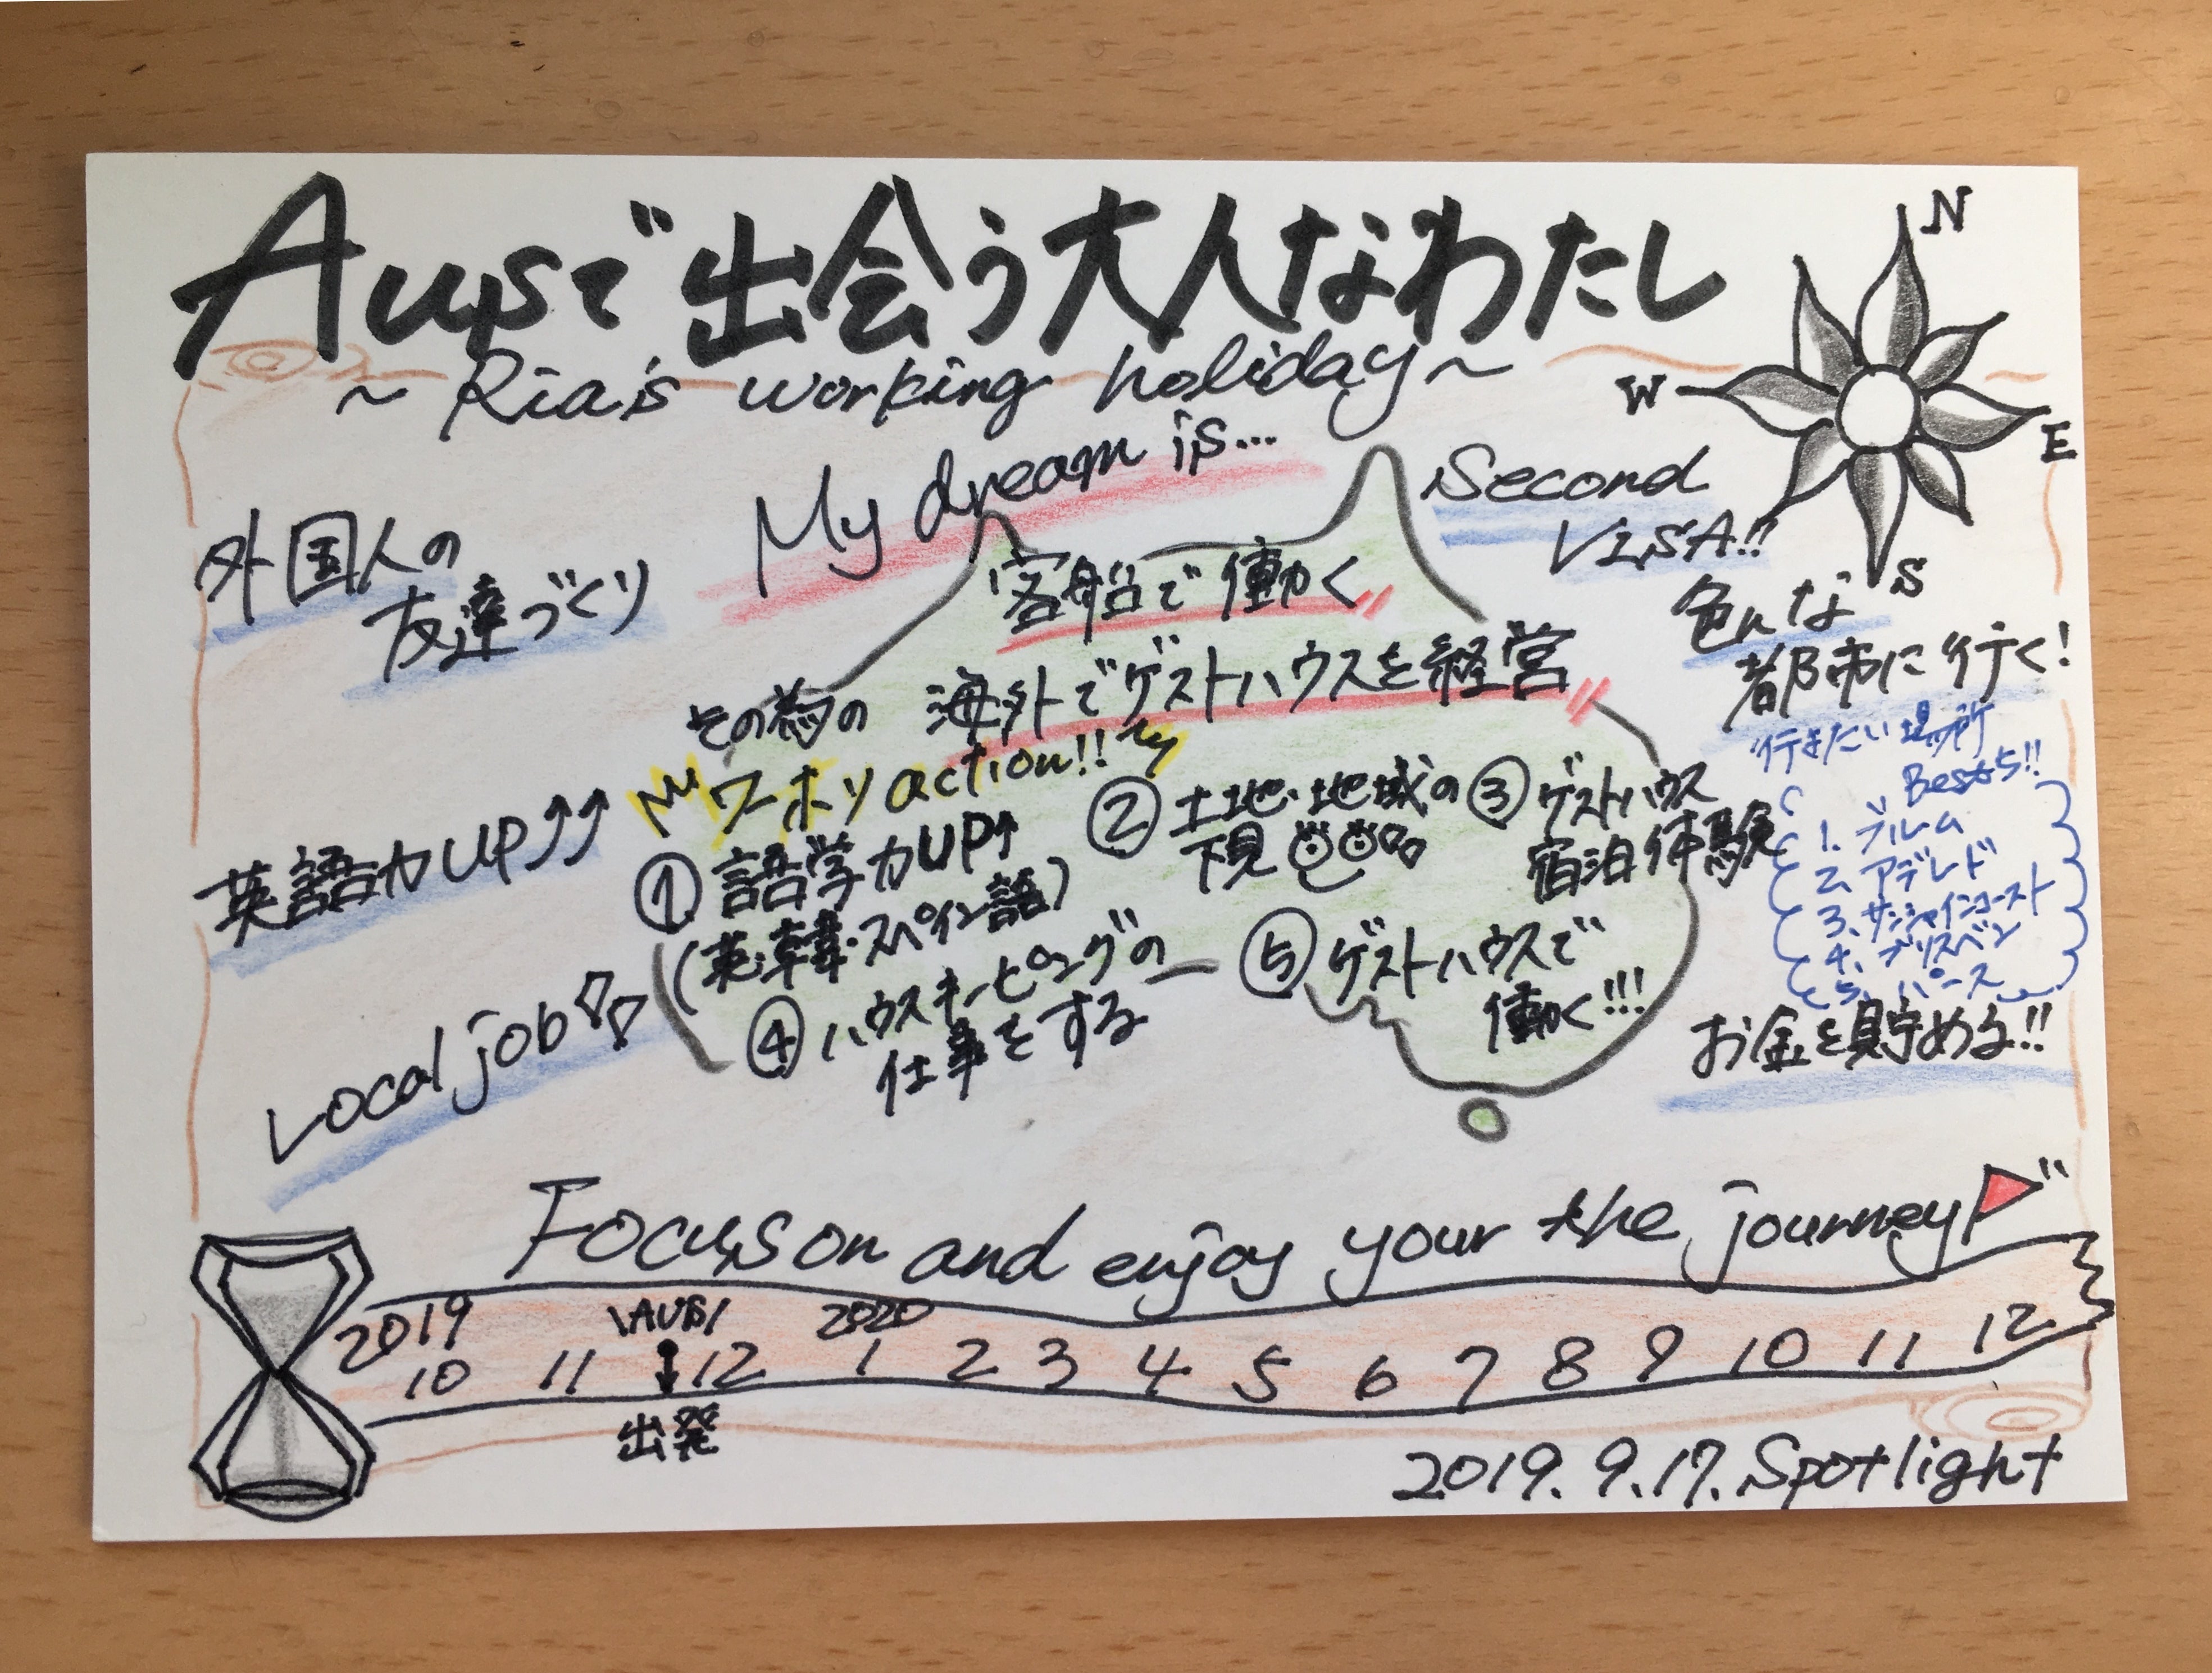 Ausで出会う大人なわたし
~ Ria's working holiday ~
N
W
E
S
My dream is...
客船で働く
海外でゲストハウスを経営
外国人の
友達づくり
英語力UP↑↑
Local job
その為の
ワーホリaction!!
① 語学力UP↑
(英・韓・スペイン語)
② 土地・地域の
下見
③ ゲストハウス
宿泊体験
④ ハウスキーピングの
仕事をする
⑤ ゲストハウスで
働く!!!
Second
VISA!!
色んな
都市に行く!
行きたい場所
Best5!!
1. ブルーム
2. アデレード
3. サンシャインコースト
4. ブリスベン
5. パース
お金を貯める!!
Focus on and enjoy your the journey
2019
\AUS/
2020
10 11 ↓ 12 1 2 3 4 5 6 7 8 9 10 11 12
出発
2019.9.17.Spotlight